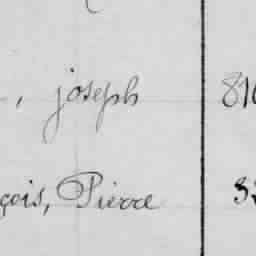 , joseph 81
çois, Pierre 3